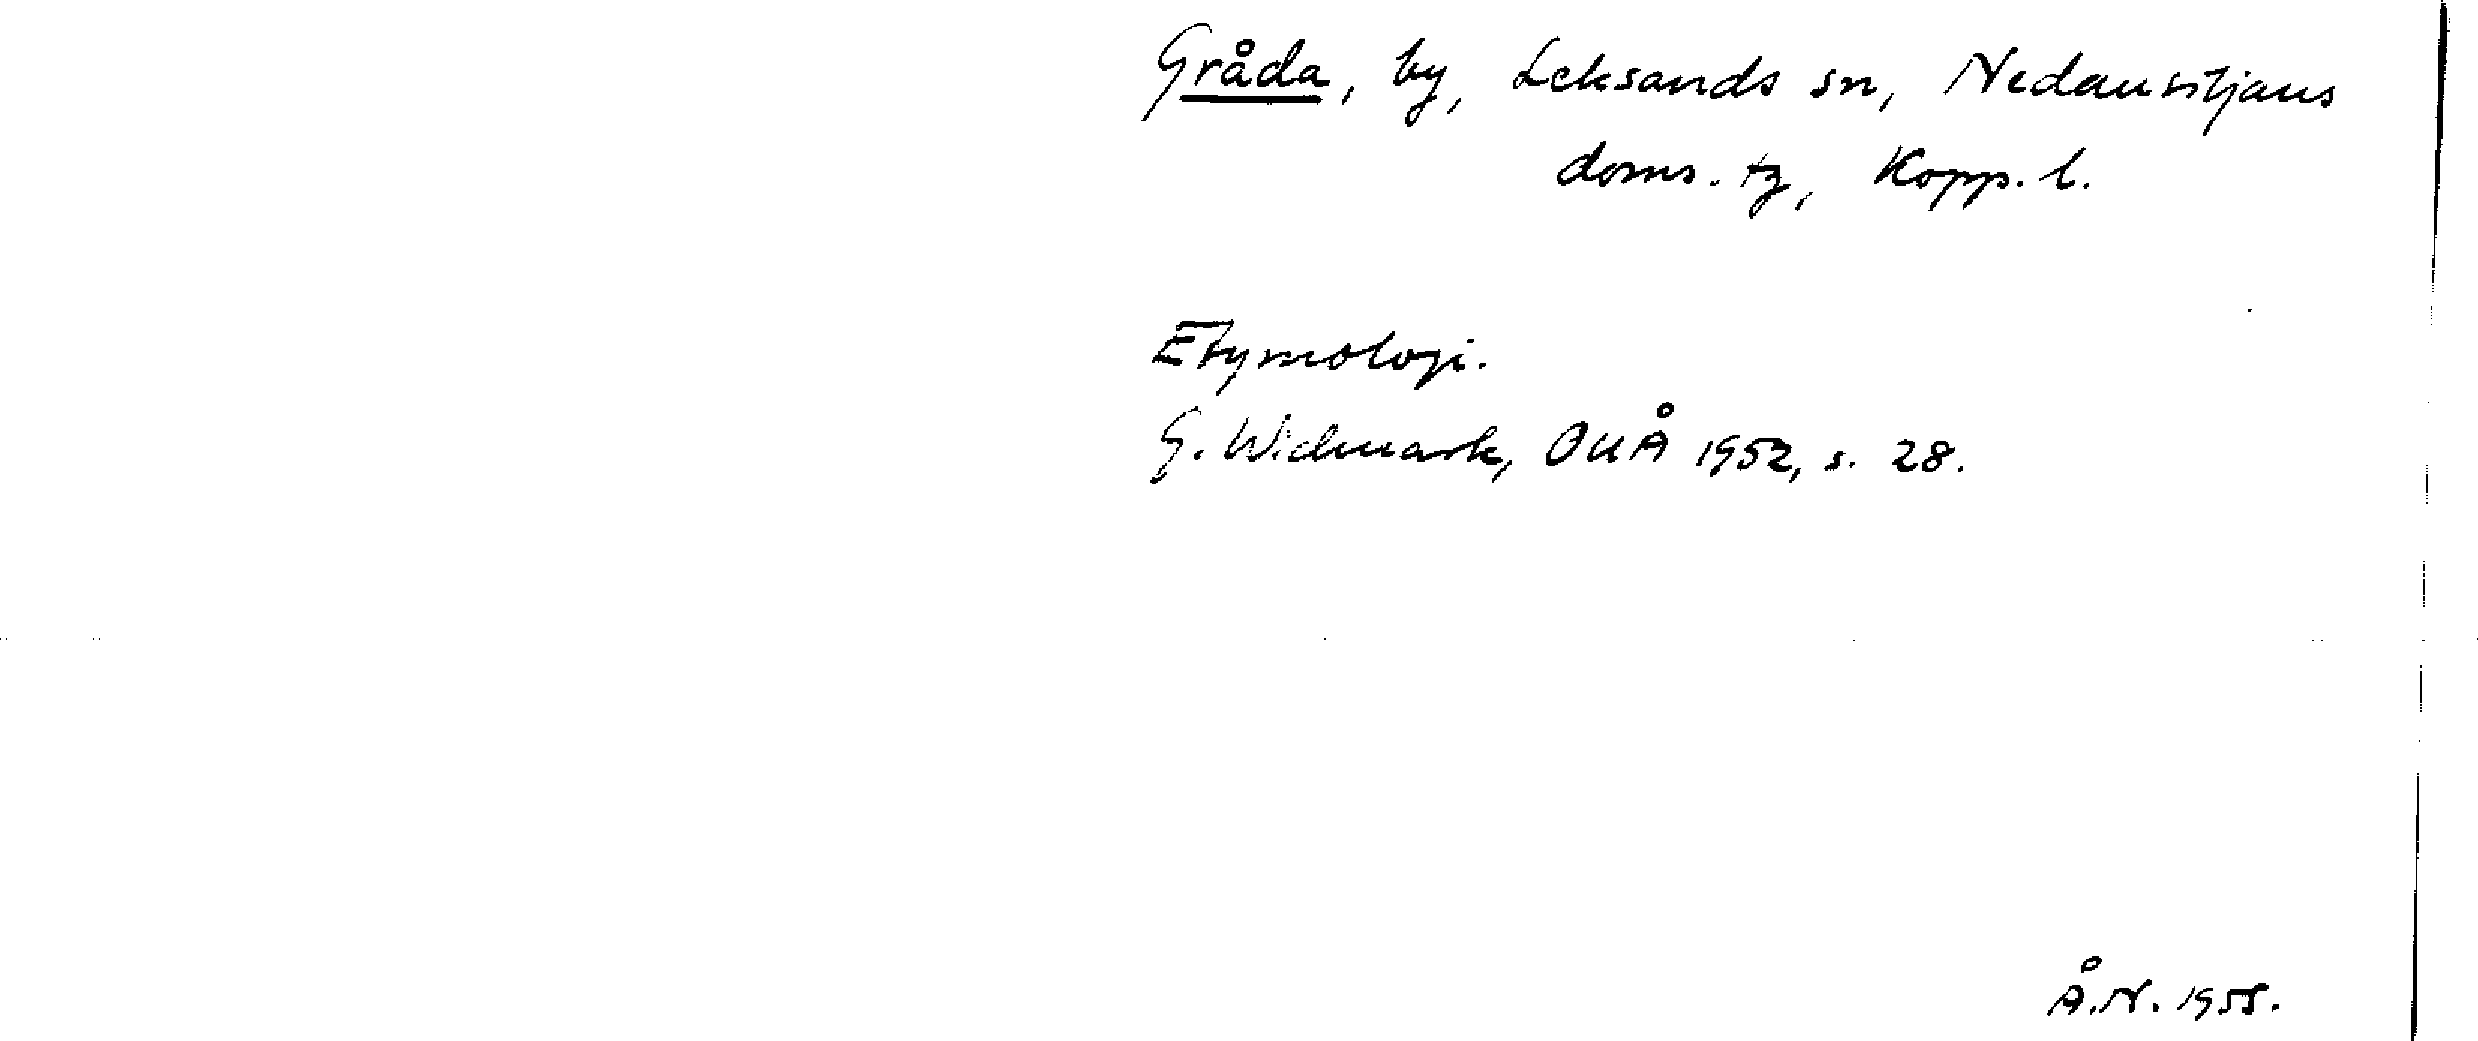 Gråda, by, Leksands sn, Nedansiljans
doms. tg, Kopp. l.
Etymologi.
G. Widmark, OUÅ 1952, s. 28.
Å.N. 1955.